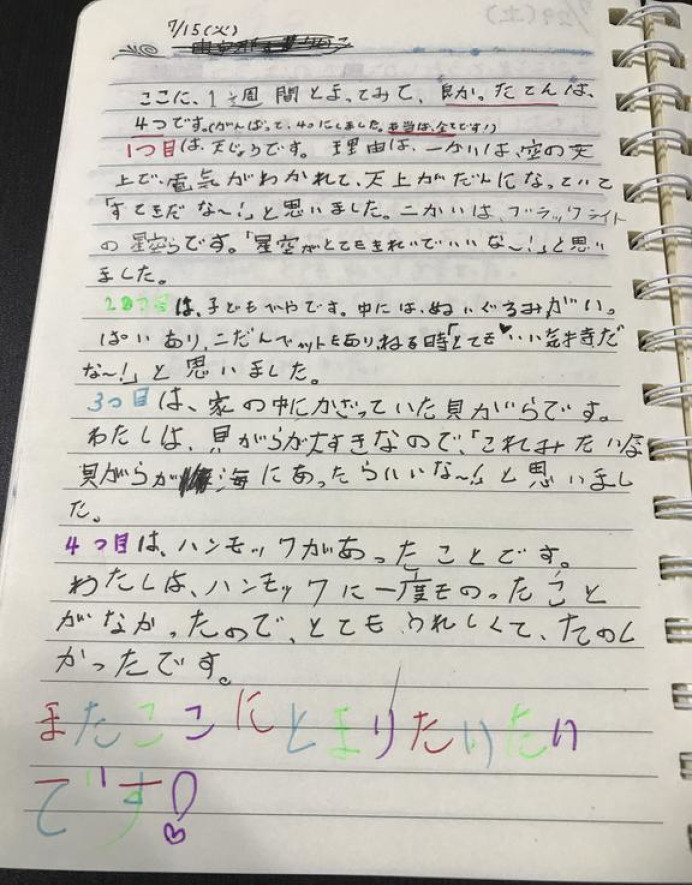 7/15(火)
ここに、1週間とまってみて、良かったてんは、
4つです。(がんばって、4つにしました。本当は、全てです!)
1つ目は、天じょうです。理由は、一かいは、空の天
上で、電気がわかれて、天上がだんになっていて
「すてきだな〜!」と思いました。二かいは、ブラックライト
の星空らです。「星空がとてもきれいでいいな〜!」と思い
ました。
2つ目は、子どもべやです。中には、ぬいぐるみがいっ
ぱいあり、二だんベットもあり、ねる時「とても♥いい気持だ
な〜!」と思いました。
3つ目は、家の中にかざっていた貝がらです。
わたしは、貝がらが大すきなので、「これみたいな
貝がらが海にあったらいいな〜!」と思いまし
た。
4つ目は、ハンモックがあったことです。
わたしは、ハンモックに一度ものったこと
がなかったので、とてもうれしくて、たのし
かったです。
またここにとまりたいたい
です!